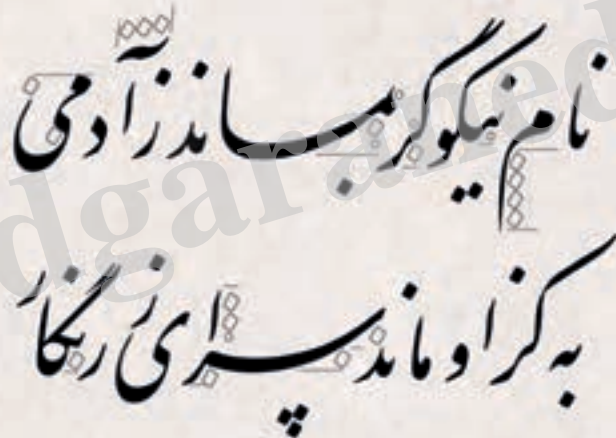 نام نیکو گر بماند ز آدمی
به کز او ماند سرای زرنگار
dgaraned